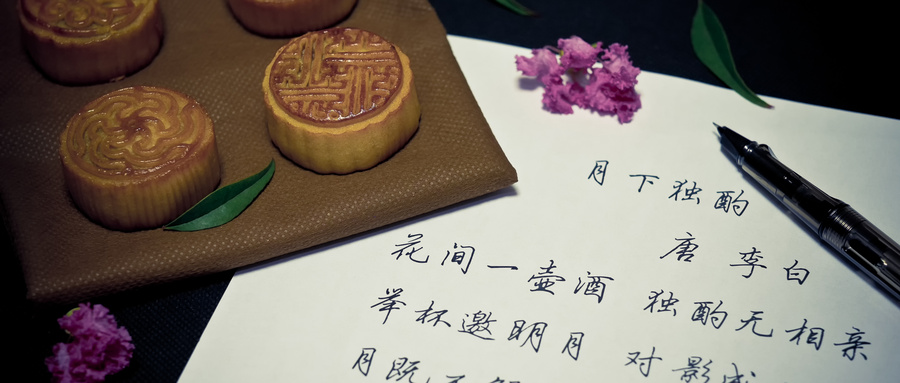 月下独酌
唐 李白
花间一壶酒 独酌无相亲
举杯邀明月 对影成
月既不解